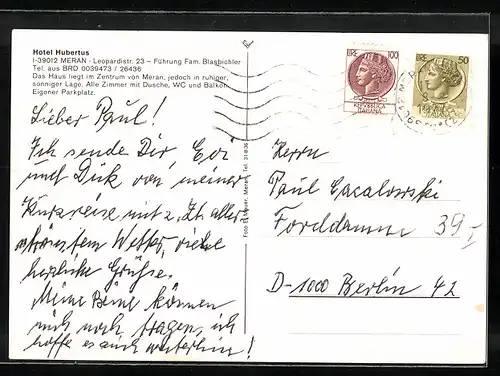 Hotel Hubertus
I-39012 MERAN - Leopardistr. 23 – Führung Fam. Blasbichler
Tel. aus BRD 0039473 / 26436
Das Haus liegt im Zentrum von Meran, jedoch in ruhiger,
sonniger Lage. Alle Zimmer mit Dusche, WC und Balkon.
Eigener Parkplatz.
Lieber Paul!
Ich sende Dir,
und Dick von meiner
Kurzreise mit z. Zt. aller
Wetter, viele
herzliche Grüße.
Meine Beine können
mich noch tragen, ich
hoffe es auch weiterhin!
Meran, Tel.
LIRE 100
REPVBBLICA
ITALIANA
LIRE 50
Herrn
Paul
39
D-1000 Berlin 42